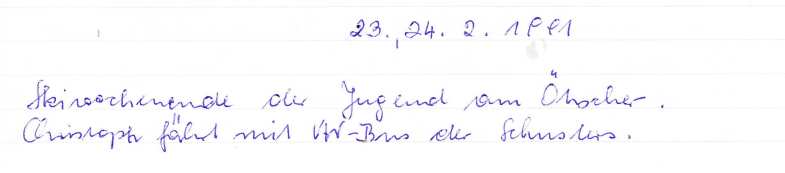 23., 24. 2. 1991
Skiwochenende der Jugend am Ötscher.
Christoph fährt mit VW-Bus der Schusters.